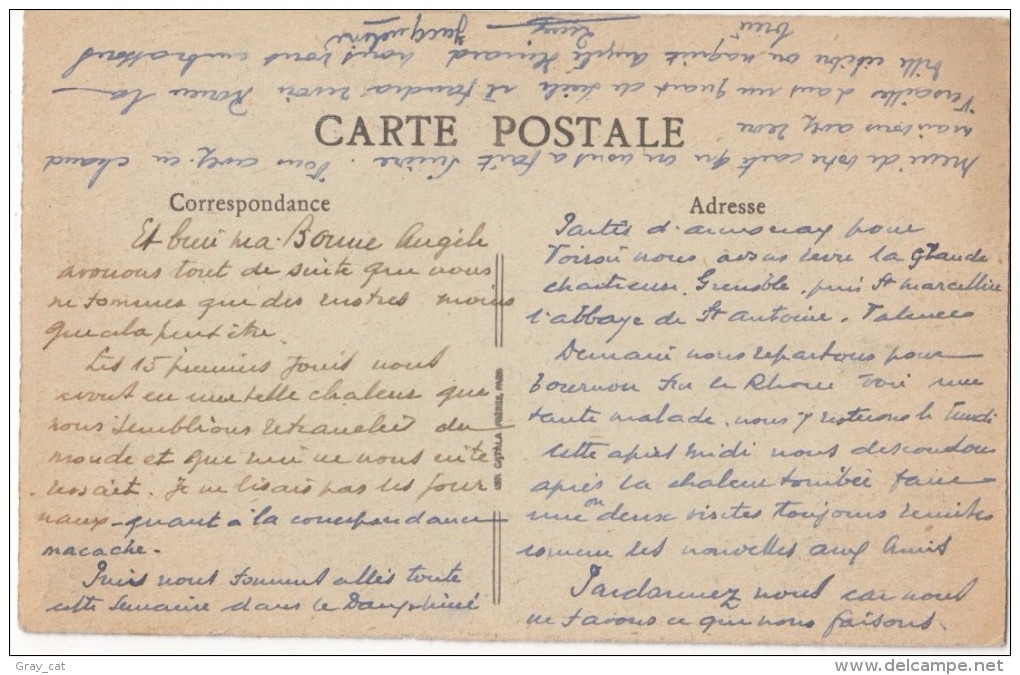 CARTE POSTALE
Correspondance
Et bien ma Bonne Angèle
avouons tout de suite que nous
ne sommes que des rustres moins
que cela peut être.
Les 15 premiers jours nous
avons eu une telle chaleur que
nous semblions retranchés du
monde et que rien ne nous inté
ressait. Je ne lisais pas les jour
naux - quant à la correspondance
macache.
Puis nous sommes allés toute
cette semaine dans le Dauphiné
Adresse
Partis d'annonay pour
Voiron nous avons revu la Grande
chartreuse, Grenoble, puis St marcellin
l'abbaye de St antoine, Valence
Demain nous repartons pour
Tournon sur le Rhone voir une
tante malade, nous y resterons le lundi
cette après midi nous descendons
après la chaleur tombée faire
une ou deux visites toujours remises
comme les nouvelles aux amis
Pardonnez nous car nous
ne savons ce que nous faisons.
merci de votre carte qu'on nous a fait suivre. Vous avez eu chaud
mais vous avez revu
Versailles dans un quart de siècle il faudra revoir la
ville célèbre où naquit angèle nous vous embrassons
bien
Jacqueline
IMP. CATALA FRÈRES, PARIS
Gray_cat
http://www.delcampe.net